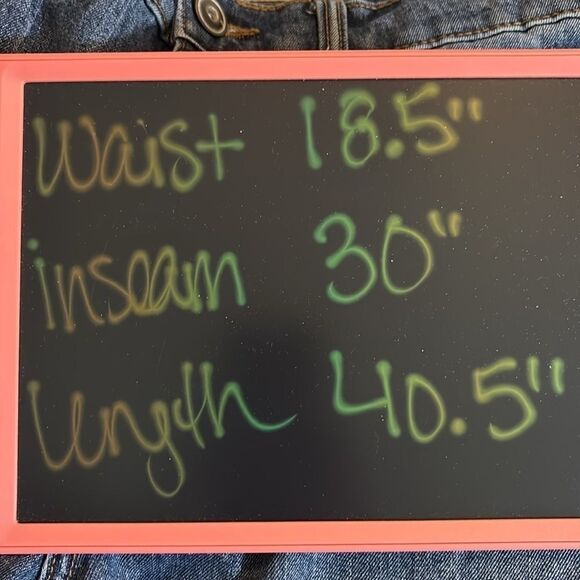 Waist 18.5"
inseam 30"
length 40.5"